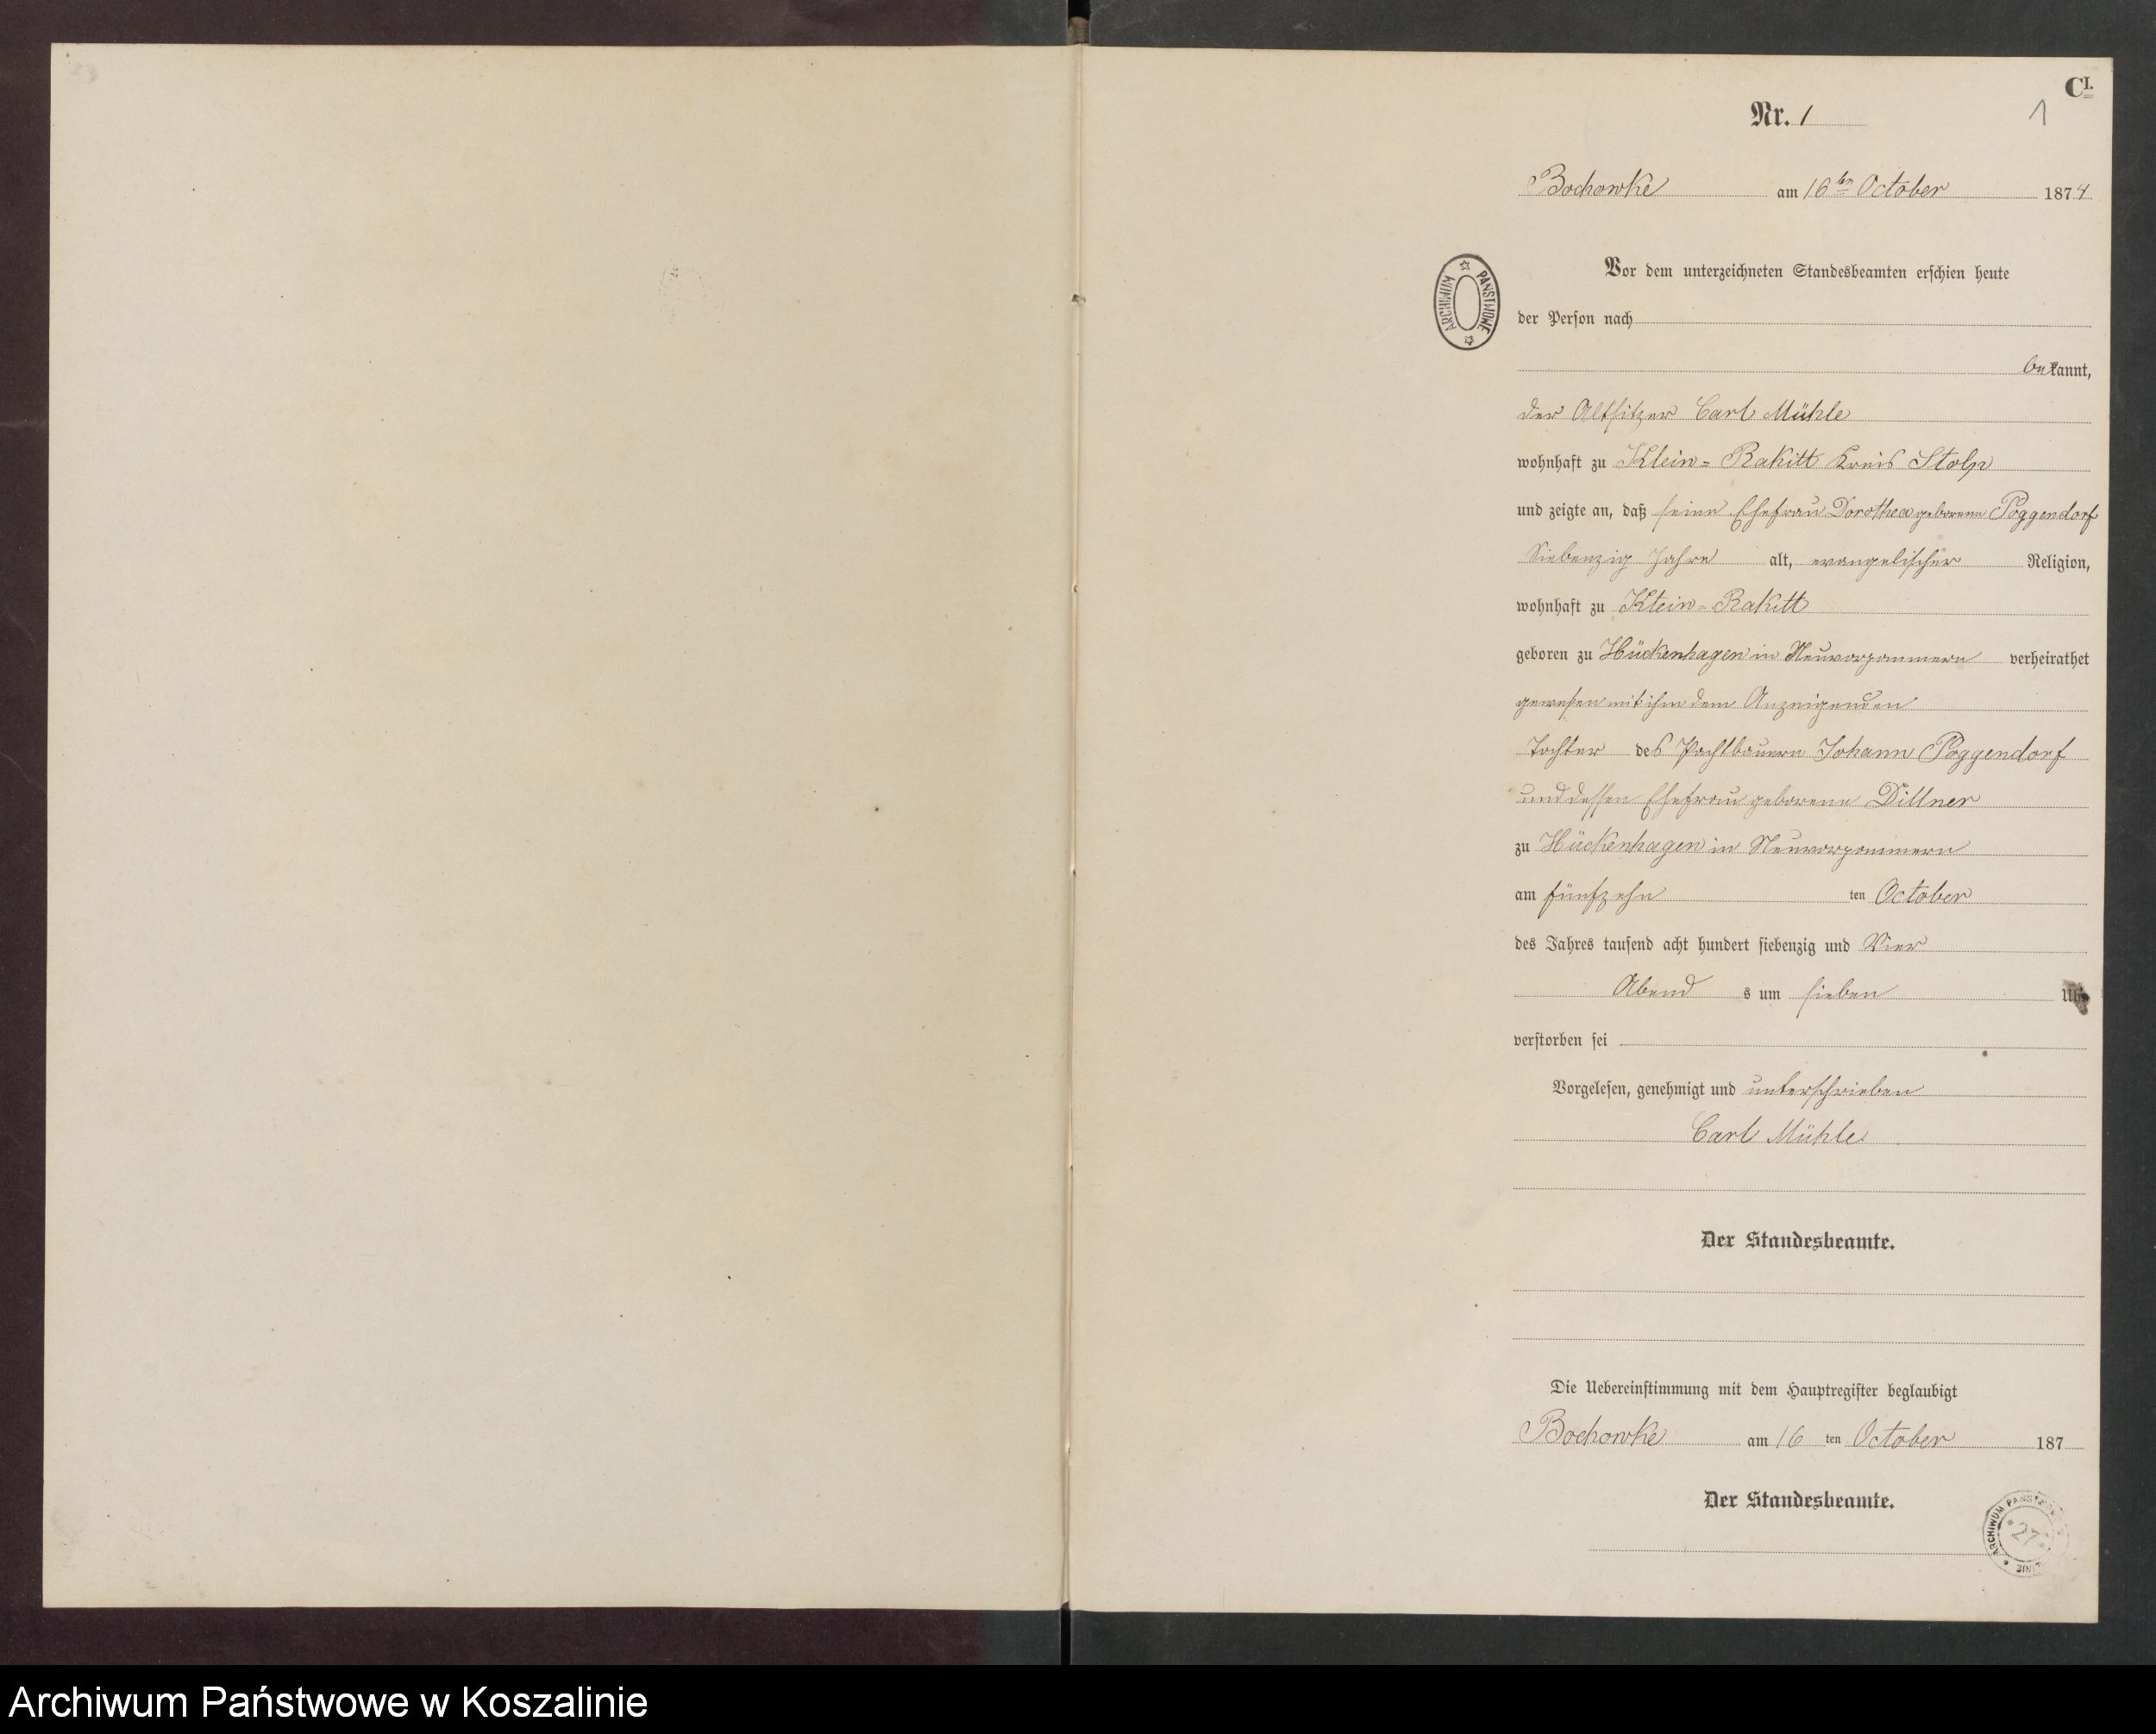 C I.
Nr. 1
1
Bochowke am 16ten October 1874
Vor dem unterzeichneten Standesbeamten erschien heute
der Person nach
bekannt,
der Altsitzer Carl Mühle
wohnhaft zu Klein=Rakitt Kreis Stolp
und zeigte an, daß seine Ehefrau Dorothea geborene Poggendorf
Siebenzig Jahre alt, evangelischer Religion,
wohnhaft zu Klein=Rakitt
geboren zu Hückenhagen in Neuvorpommern verheirathet
gewesen mit ihm dem Anzeigenden
Tochter des Pachtbauern Johann Poggendorf
und dessen Ehefrau geborene Dillner
zu Hückenhagen in Neuvorpommern
am fünfzehn ten October
des Jahres tausend acht hundert siebenzig und Vier
Abend s um sieben Uhr
verstorben sei
Vorgelesen, genehmigt und unterschrieben
Carl Mühle
Der Standesbeamte.
Die Uebereinstimmung mit dem Hauptregister beglaubigt
Bochowke am 16 ten October 187
Der Standesbeamte.
ARCHIWUM PAŃSTWOWE
ARCHIWUM
27
Archiwum Państwowe w Koszalinie